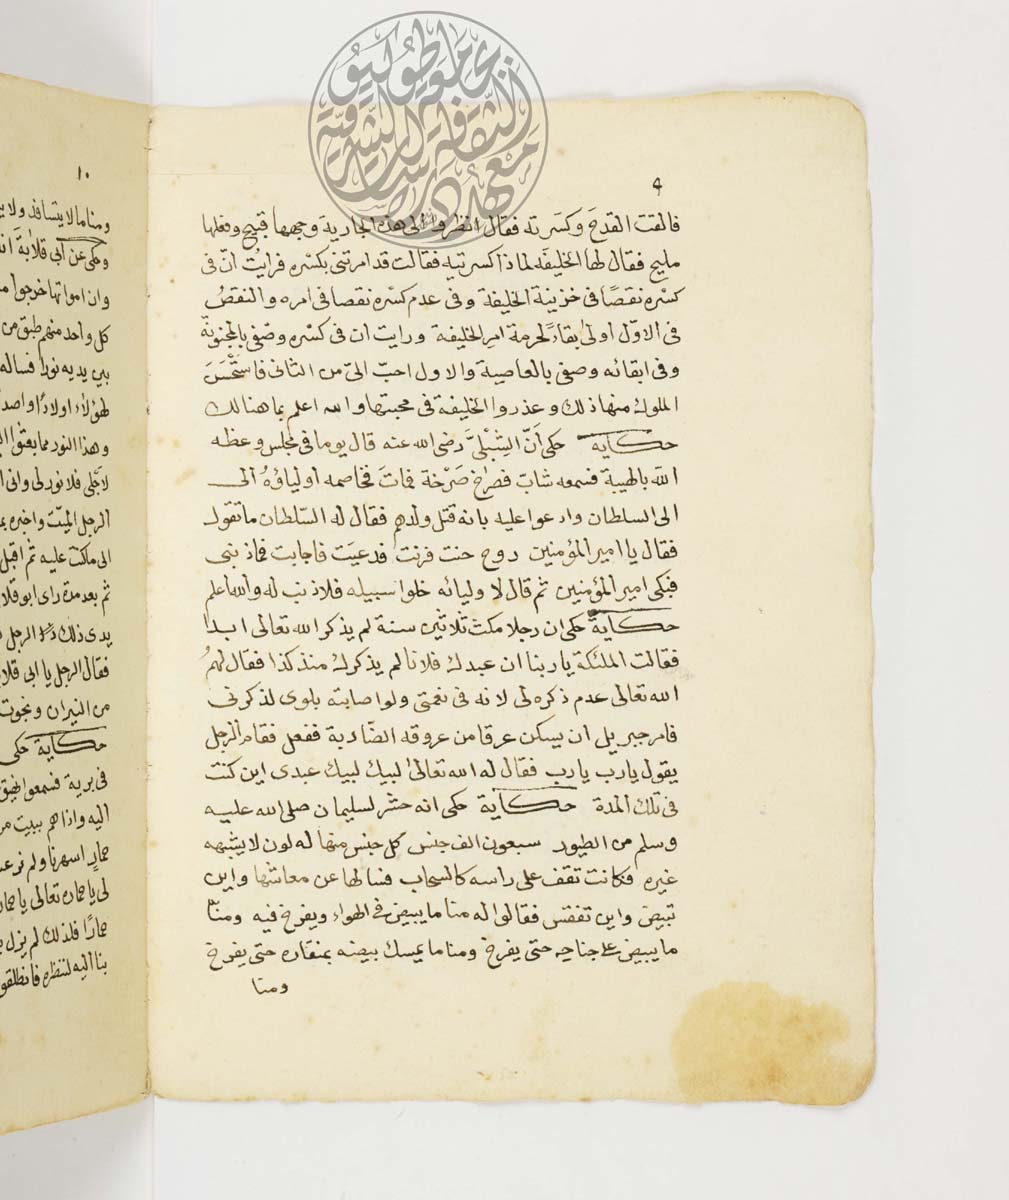 ٩
فالقت القدح وكسرته فقال انظروا الى هذه الجارية وجهها قبيح وفعلها
مليح فقال لها الخليفة لماذا كسرتيه فقالت قد امرتنى بكسره فرايت ان فى
كسره نقصًا فى خزينة الخليفة وفى عدم كسره نقصا فى امره والنقصُ
فى الاوّل اولى بقاءً لحرمة امر الخليفة ورايت ان فى كسره وصفى بالمجنونة
وفى ابقائه وصفى بالعاصية والاول احبّ الىّ من الثانى فاستحْسَنَ
الملوك منها ذلك وعذروا الخليفة فى محبتها والله اعلم بما هنالك
حكاية حكى اَنّ الشِبْلىَّ رضى الله عنه قال يوما فى مجلس وعظه
الله بالهيبة فسمعه شابّ فصرخ صَرْخة فماتَ فخاصمه اولياؤهُ الى
الى السلطان وادعوا عليه بانه قتل ولدهم فقال له السّلطان ما تقول
فقال يا امير المؤمنين روح حنت فرنت فدعيَت فاجابت فما ذنبى
فبكى امير المؤمنين ثم قال لاوليائه خلوا سبيله فلا ذنب له والله اعلم
حكاية حكى ان رجلا مكث ثلاثين سنة لم يذكر الله تعالى ابدا
فقالت الملئكة يا ربنا ان عبدك فلانا لم يذكرك منذ كذا فقال لهمُ
الله تعالى عدم ذكره لى لانه فى نعمتى ولو اصابته بلوى لذكرنى
فامر جبريل ان يسكن عرقا من عروقه الضّاربة ففعل فقام الرجل
يقول يا رب يا رب فقال له الله تعالى لبيك لبيك عبدى اين كنت
فى تلك المدة حكاية حكى انه حشر لسليمان صلى الله عليه
وسلم من الطيور سبعون الف جنس كل جنس منها له لون لا يشبهه
غيره فكانت تقف على راسه كالسحاب فسالها عن معاشها واين
تبيض واين تفقس فقالوا له منا ما يبيض فى الهواء ويفرخ فيه ومنا
ما يبيض على جناحه حتى يفرخ ومنا ما يمسك بيضه بمنقاره حتى يفرخ
ومنا
١٠
وحكى عن ابى قلابة
وان امواتها خرجوا
كل واحد منهم طبق من
بين يديه نورا فساله
وهذا النور مما بعثوا
الرجل الميّت واخبره
الى ما كنت عليه ثم اقبل
ثم بعد مدة راى ابو قلا
فقال الرجل يا ابى قلا
من النيران ونجوت
حكاية حكى
فى برية فسمعوا نهيق
اليه واذا هم ببيت
حمارٍ اسهرنا ولم نر
حمارًا فلذلك لم يزل
بنا اليه لننظره فانطلقو